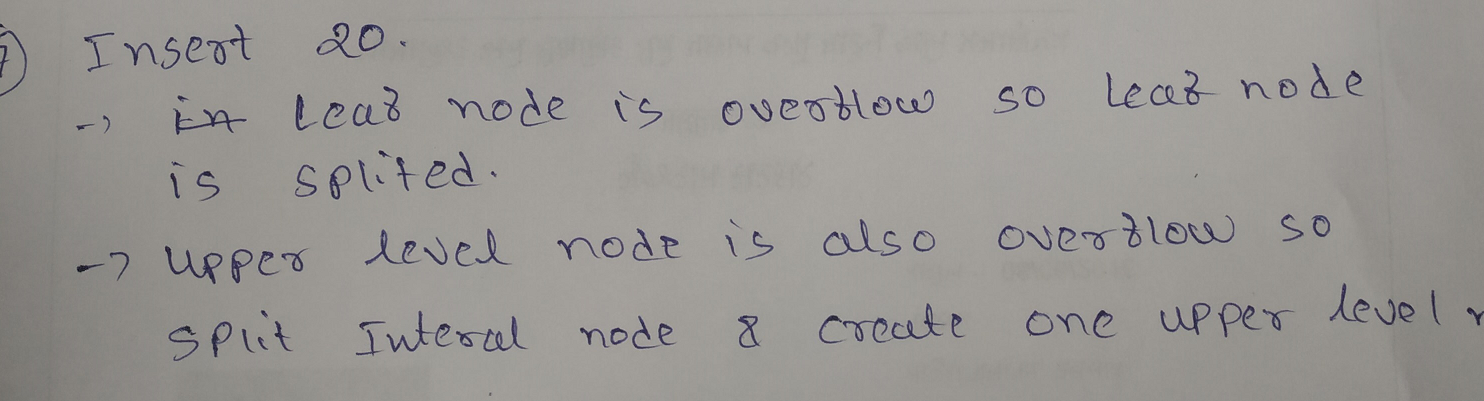 Insert 20.
-> Leaf node is overflow so Leaf node
is splited.
-> upper level node is also overflow so
split Interal node & create one upper level